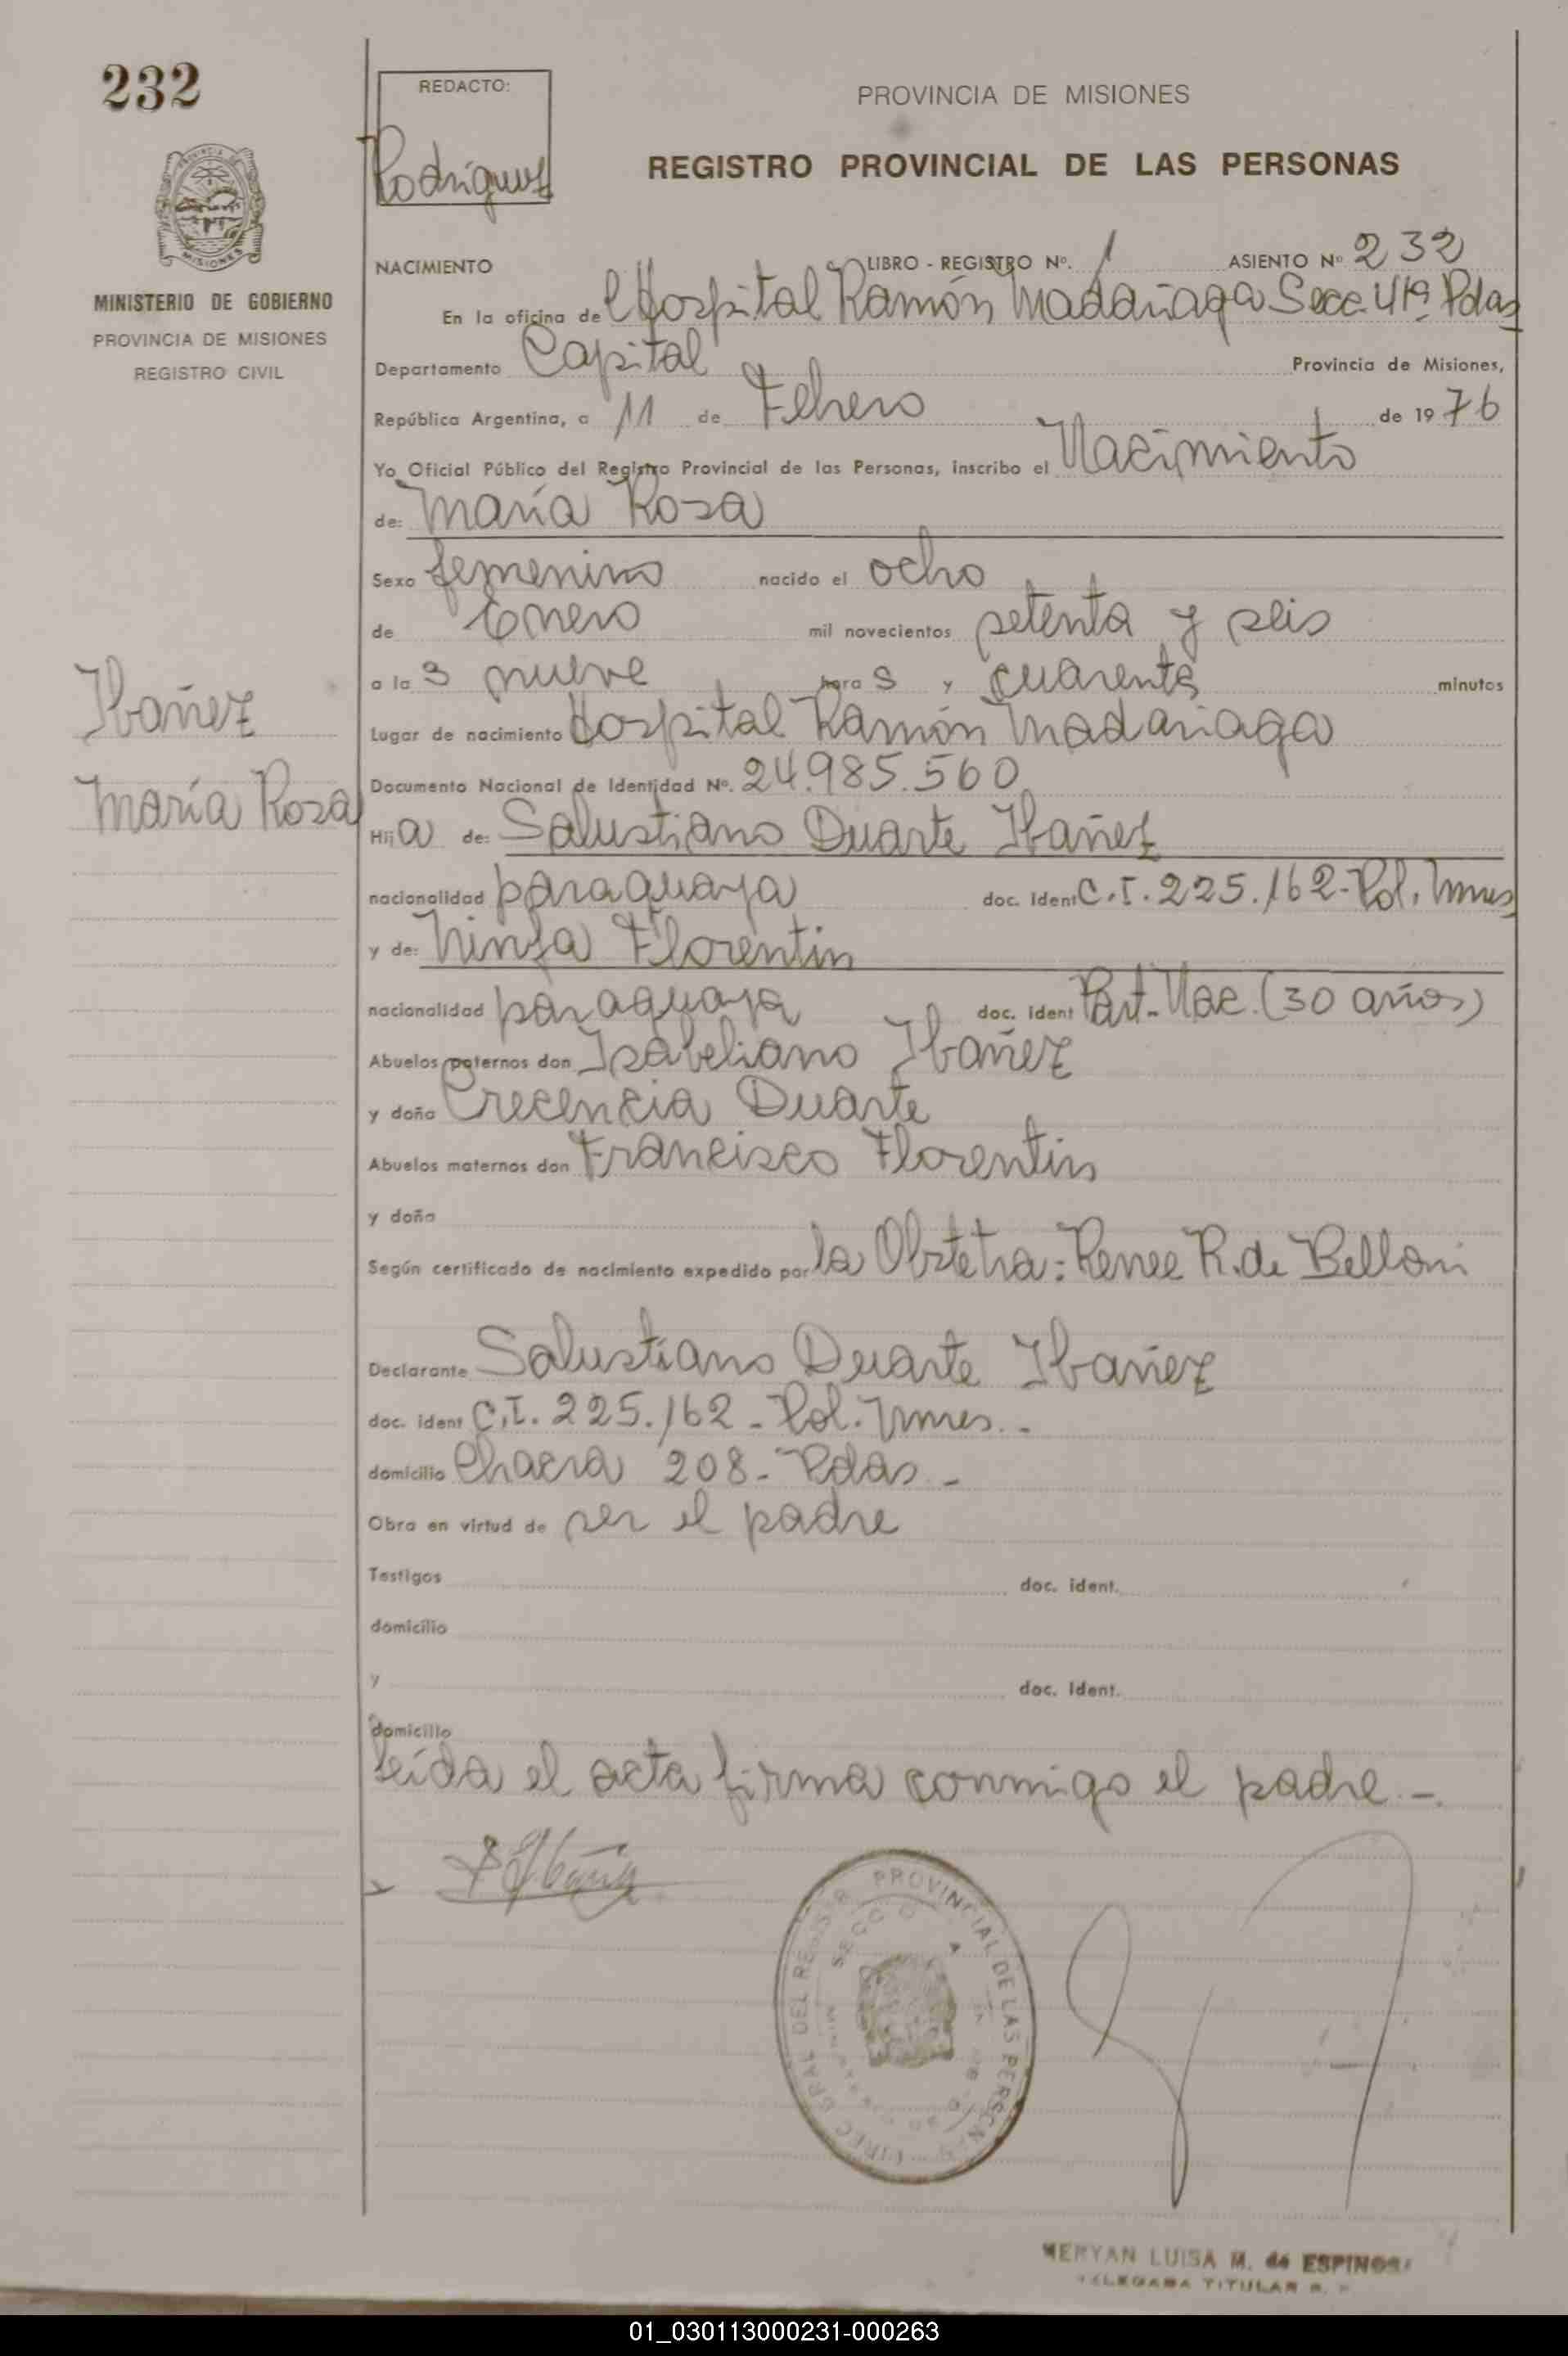 232
REDACTO:
Rodriguez
PROVINCIA DE MISIONES
REGISTRO PROVINCIAL DE LAS PERSONAS
MISIONES
MINISTERIO DE GOBIERNO
PROVINCIA DE MISIONES
REGISTRO CIVIL
NACIMIENTO LIBRO - REGISTRO Nº. 1 ASIENTO Nº 232
En la oficina de Hospital Ramón Madariaga Secc. 4ta. Pdas
Departamento Capital Provincia de Misiones,
República Argentina, a 11 de Febrero de 1976
Yo Oficial Público del Registro Provincial de las Personas, inscribo el Nacimiento
de: María Rosa
Sexo femenino nacido el ocho
de Enero mil novecientos setenta y seis
a la s nueve hora s y cuarenta minutos
Ibañez
Lugar de nacimiento Hospital Ramón Madariaga
Documento Nacional de Identidad Nº. 24.985.560
María Rosa
Hija de: Salustiano Duarte Ibañez
nacionalidad paraguaya doc. ident C.I. 225.162- Pol. Mnes
y de: Ninfa Florentin
nacionalidad paraguaya doc. ident Part. Nac. (30 años)
Abuelos paternos don Isabeliano Ibañez
y doña Crecencia Duarte
Abuelos maternos don Francisco Florentin
y doña
Según certificado de nacimiento expedido por la Obstetra: Renee R. de Belloni
Declarante Salustiano Duarte Ibañez
doc. ident C.I. 225.162 - Pol. Mnes. -
domicilio Chacra 208 - Pdas -
Obra en virtud de ser el padre
Testigos doc. ident.
domicilio
y doc. ident.
domicilio
Leída el acta firma conmigo el padre. -
PROVINCIAL DE LAS PERSONAS
MERYAN LUISA M. de ESPINOSA
DELEGADA TITULAR
01_030113000231-000263